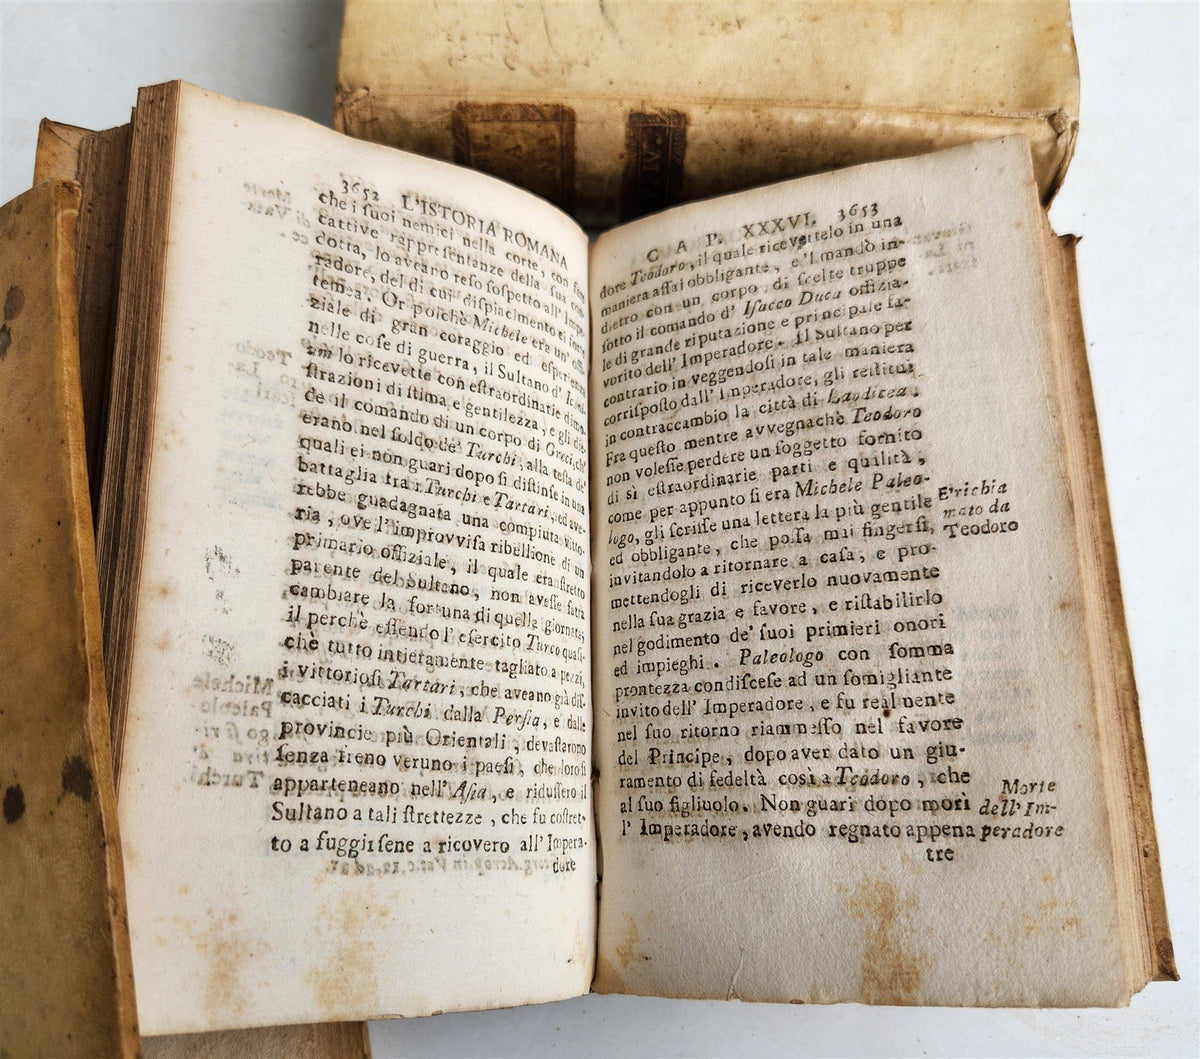 3652 L'ISTORIA ROMANA
che i ſuoi nemici nella corte, con ſue
cattive rappreſentanze della ſua con-
dotta, lo aveano reſo ſoſpetto all' Impe-
radore, del di cui diſpiacimento ei ſorte
temea. Or poichè Michele era un' offi-
ziale di gran coraggio ed eſperienza
nelle coſe di guerra, il Sultano d' Iconi-
um lo ricevette con eſtraordinarie dimo-
ſtrazioni di ſtima e gentilezza, e gli die-
de il comando di un corpo di Greci, ch'
erano nel ſoldo de' Turchi, alla teſta de'
quali ei non guari dopo ſi diſtinſe in una
battaglia fra i Turchi e Tartari, ed ave-
rebbe guadagnata una compiuta vitto-
ria, ove l'improvviſa ribellione di un
primario offiziale, il quale era ſtretto
parente del Sultano, non aveſſe fatta
cambiare la fortuna di quella giornata;
il perchè eſſendo l' eſercito Turco quaſi-
chè tutto intieramente tagliato a pezzi,
i vittorioſi Tartari, che aveano già diſ-
cacciati i Turchi dalla Perſia, e dalle
provincie più Orientali, devaſtarono
ſenza freno veruno i paeſi, che loro ſi
apparteneano nell' Aſia, e riduſſero il
Sultano a tali ſtrettezze, che fu coſtret-
to a fuggirſene a ricovero all' Impera-
dore
C A P. XXXVI. 3653
dore Teodoro, il quale ricevettelo in una
maniera aſſai obbligante, e 'l mandò in-
dietro con un corpo di ſcelte truppe
ſotto il comando d' Iſacco Duca offizia-
le di grande riputazione e principale fa-
vorito dell' Imperadore. Il Sultano per
contrario in veggendoſi in tale maniera
corriſpoſto dall' Imperadore, gli reſtituì
in contraccambio la città di Laodicea.
Fra queſto mentre avvegnachè Teodoro
non voleſſe perdere un ſoggetto fornito
di sì eſtraordinarie parti e qualità,
come per appunto ſi era Michele Paleo-
logo, gli ſcriſſe una lettera la più gentile
ed obbligante, che poſſa mai fingerſi,
invitandolo a ritornare a caſa, e pro-
mettendogli di riceverlo nuovamente
nella ſua grazia e favore, e riſtabilirlo
nel godimento de' ſuoi primieri onori
ed impieghi. Paleologo con ſomma
prontezza condiſceſe ad un ſomigliante
invito dell' Imperadore, e fu realmente
nel ſuo ritorno riammeſſo nel favore
del Principe, dopo aver dato un giu-
ramento di fedeltà così a Teodoro, che
al ſuo figliuolo. Non guari dopo morì
l' Imperadore, avendo regnato appena
tre
E' richia
mato da
Teodoro
Morte
dell' Im-
peradore